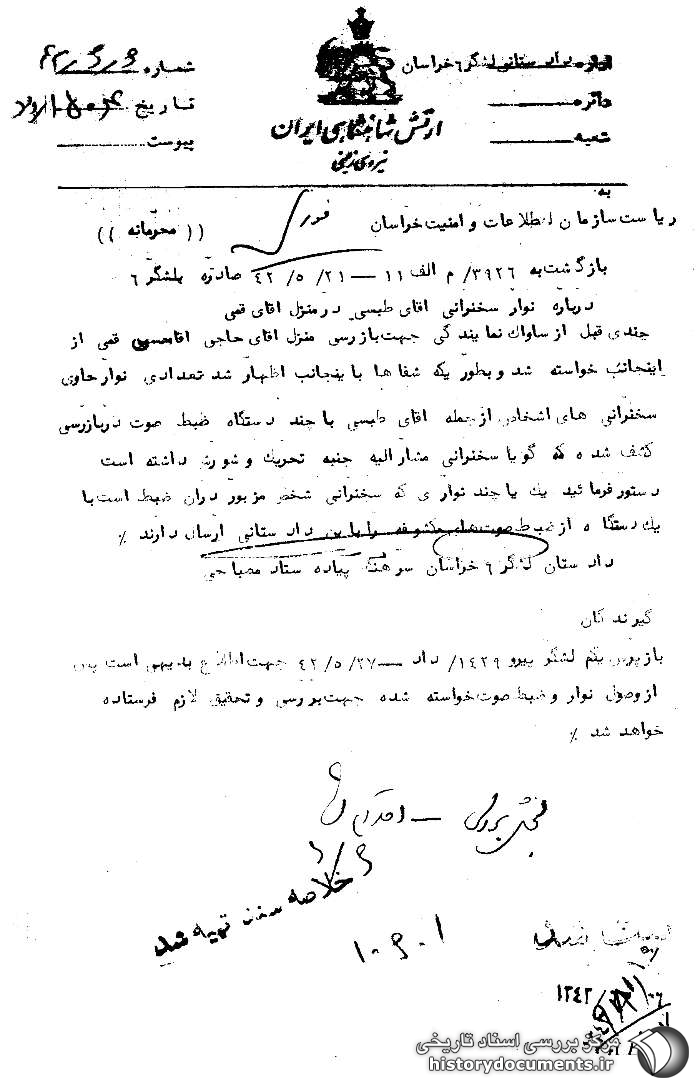 اداره دادستانی لشگر ۶ خراسان
دائره
شعبه
ارتش شاهنشاهی ایران
نیروی زمینی
شماره
تاریخ
پیوست
به
ریاست سازمان اطلاعات و امنیت خراسان
(( محرمانه ))
بازگشت به ۳۹۲۶/ م الف ۱۱ — ۴۲/۵/۲۱ صادره بلشگر ۶
درباره نوار سخنرانی اقای طبسی در منزل اقای قمی
چندی قبل از ساواك نمایندگی جهت بازرسی منزل اقای حاجی اقا حسین قمی از
اینجانب خواسته شد و بطوریکه شفاها با ینجانب اظهار شد تعدادی نوار حاوی
سخنرانی های اشخاص از جمله اقای طبسی با چند دستگاه ضبط صوت در بازرسی
کشف شده که گویا سخنرانی مشارالیه جنبه تحریك و شورش داشته است
دستور فرمائید یك یا چند نواری که سخنرانی شخص مزبور در ان ضبط است با
یك دستگاه از ضبط صوت های مکشوفه را باین دادستانی ارسال دارند ٪
دادستان لشگر ۶ خراسان سرهنگ پیاده ستاد مصباحی
گیرندگان
بازپرس یکم لشگر پیرو ۱۴۲۹/ داد — ۴۲/۵/۲۷ جهت اطلاع بدیهی است پس
از وصول نوار و ضبط صوت خواسته شده جهت بررسی و تحقیق لازم فرستاده
خواهد شد ٪
بخش بررسی — اقدام
خلاصه سند تهیه شد
۱-۶-۱
۱۳۴۲
مرکز بررسی اسناد تاریخی
historydocuments.ir